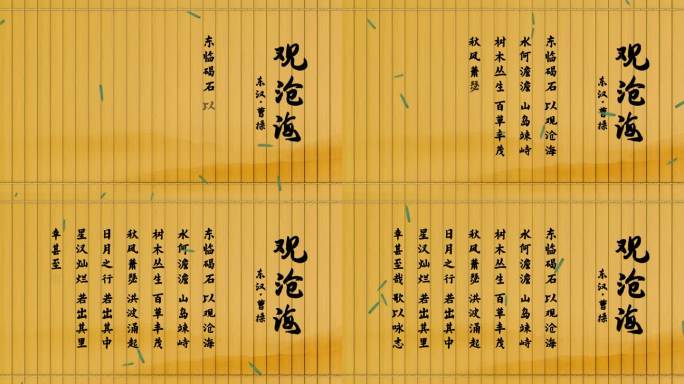 观沧海
东汉·曹操
东临碣石 以
观沧海
东汉·曹操
东临碣石 以观沧海
水何澹澹 山岛竦峙
树木丛生 百草丰茂
秋风萧瑟
观沧海
东汉·曹操
东临碣石 以观沧海
水何澹澹 山岛竦峙
树木丛生 百草丰茂
秋风萧瑟 洪波涌起
日月之行 若出其中
星汉灿烂 若出其里
幸甚至
观沧海
东汉·曹操
东临碣石 以观沧海
水何澹澹 山岛竦峙
树木丛生 百草丰茂
秋风萧瑟 洪波涌起
日月之行 若出其中
星汉灿烂 若出其里
幸甚至哉 歌以咏志